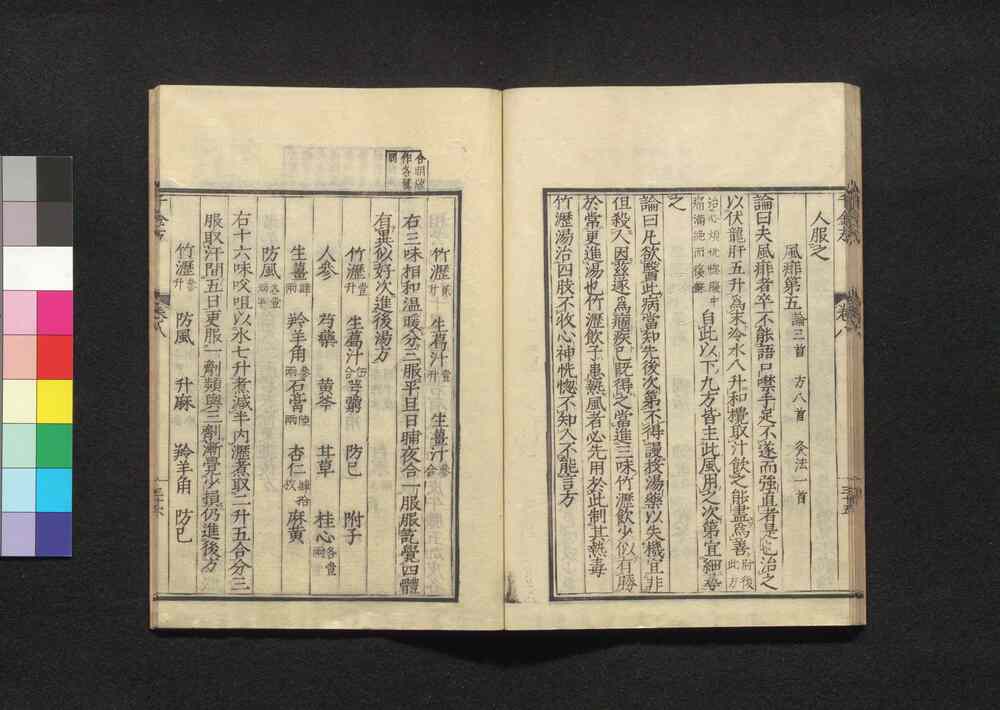 人服之
風痱第五 論三首 方八首 灸法一首
論曰夫風痱者卒不能語口噤手足不遂而強直者是也治之
以伏龍肝五升為末冷水八升和攪取汁飲之能盡為善
自此以下九方皆主此風用之次第宜細尋
之
論曰凡欲醫此病當知先後次第不得謾投湯藥以失機宜非
但殺人因茲遂為痼疾已既得之當進三味竹瀝飲少似有勝
於常更進湯也竹瀝飲子患熱風者必先用於此制其熱毒
竹瀝湯治四肢不收心神恍惚不知人不能言方
竹瀝貳升 生葛汁壹升 生薑汁叁合
右三味相和溫暖分三服平旦日晡夜各一服服訖覺四體
有異似好次進後湯方
竹瀝壹升 生葛汁伍合 芎藭 防己 附子
人參 芍藥 黃芩 甘草 桂心各壹兩
生薑肆兩 羚羊角叁兩 石膏陸兩 杏仁肆拾枚 麻黃
防風各壹兩半
右十六味㕮咀以水七升煮減半內瀝煮取二升五合分三
服取汗間五日更服一劑頻與三劑漸覺少損仍進後方
竹瀝叁升 防風 升麻 羚羊角 防己